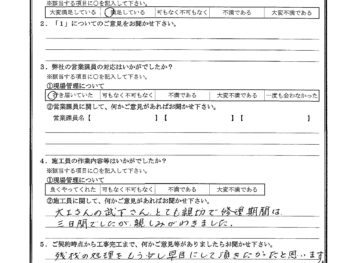 ※該当する項目に○を記入して下さい。
大変満足している 満足している 可もなく不可もなく 不満である 大変不満である
2．「1」についてのご意見をお聞かせ下さい。
3．弊社の営業課員の対応はいかがでしたか？
※該当する項目に○を記入して下さい。
①現場管理について
行き届いていた 可もなく不可もなく 不満である 大変不満である 一度も会わなかった
②営業課員に関して、何かご意見があればお聞かせ下さい。
営業課員名【 】 【 】 【 】
4．施工員の作業内容等はいかがでしたか？
※該当する項目に○を記入して下さい。
①現場管理について
良くやってくれた 可もなく不可もなく 不満である 大変不満である
②施工員に関して、何かご意見があればお聞かせ下さい。
大工さんの武下さん、とても親切で修理期間は
三日間でしたが、親しみがわきました。
5．ご契約時点から工事完工まで、何かご意見等がありましたらお聞かせ下さい。
残材の処理をもう少し早目にして頂きたかったと思います